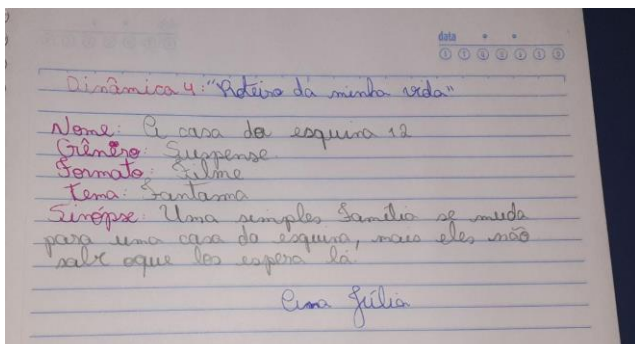 data
Dinâmica 4: "Roteiro da minha vida"
Nome: A casa da esquina 12
Gênero: Suspense
Formato: Filme
Tema: Fantasma
Sinópse: Uma simples família se muda
para uma casa da esquina, mais eles não
sabe oque los espera lá.
Ana Júlia